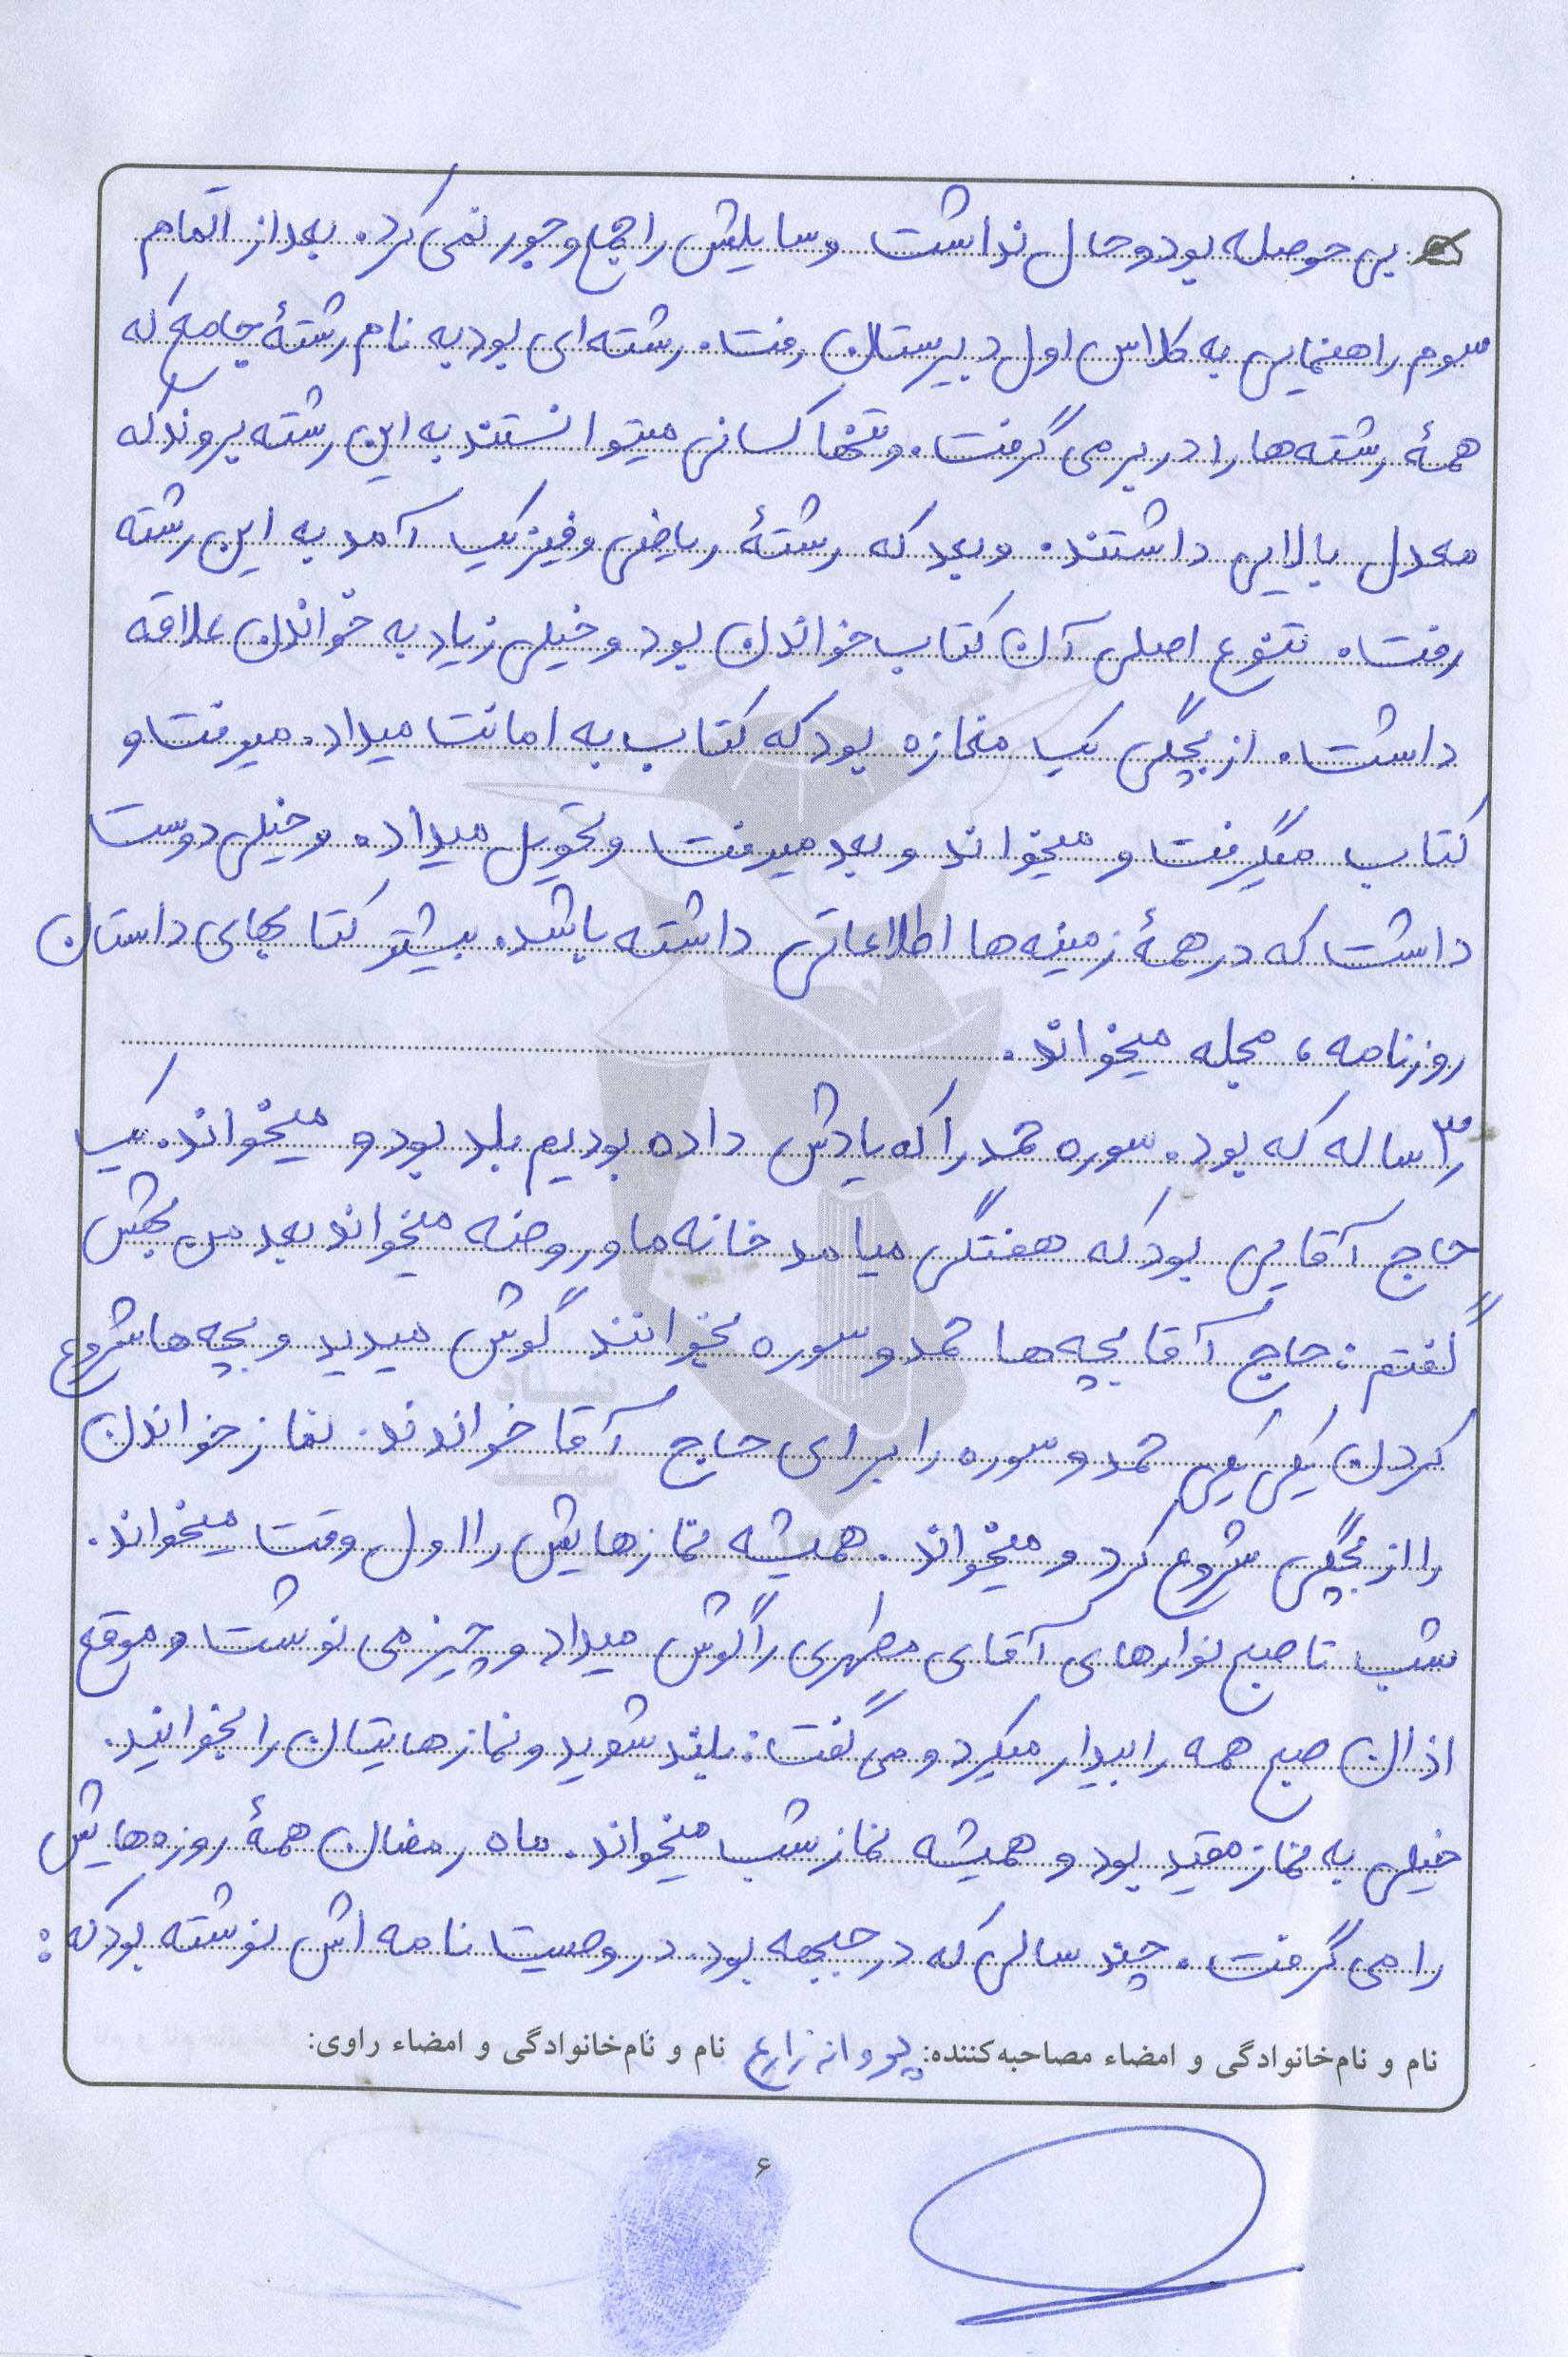 بی حوصله بود و حال نداشت وسایلش را جمع و جور نمی کرد. بعد از اتمام
سوم راهنمایی به کلاس اول دبیرستان رفت. رشته ای بود به نام رشتهٔ جامع که
همهٔ رشته ها را در بر می گرفت. و تنها کسانی میتوانستند به این رشته بروند که
معدل بالایی داشتند. و بعد که رشتهٔ ریاضی و فیزیک آمد به این رشته
رفت. تنوع اصلی آن کتاب خواندن بود و خیلی زیاد به خواندن علاقه
داشت. از بچگی یک مغازه بود که کتاب به امانت میداد. میرفت و
کتاب میگرفت و میخواند و بعد میرفت و تحویل میداد. و خیلی دوست
داشت که در همهٔ زمینه ها اطلاعاتی داشته باشد. بیشتر کتابهای داستان
روزنامه، مجله میخواند.
۳ ساله که بود. سوره حمد را که یادش داده بودیم بلد بود و میخواند. یک
حاج آقایی بود که هفتگی میامد خانه ما و روضه میخواند بعد من بهش
گفتم: حاج آقا بچه ها حمد و سوره بخوانند گوش میدید و بچه ها شروع
کردن یکی یکی حمد و سوره را برای حاج آقا خواندند. نماز خواندن
را از بچگی شروع کرد و میخواند. همیشه نمازهایش را اول وقت میخواند.
شب تا صبح نوارهای آقای مطهری را گوش میداد و چیز می نوشت و موقع
اذان صبح همه را بیدار میکرد و می گفت: بلند شوید و نمازهایتان را بخوانید.
خیلی به نماز مقید بود و همیشه نماز شب میخواند. ماه رمضان همهٔ روزه هایش
را می گرفت. چند سالی که در جبهه بود. در وصیت نامه اش نوشته بود که:
نام و نام‌خانوادگی و امضاء مصاحبه‌کننده: پروانه زارع نام و نام‌خانوادگی و امضاء راوی:
۶